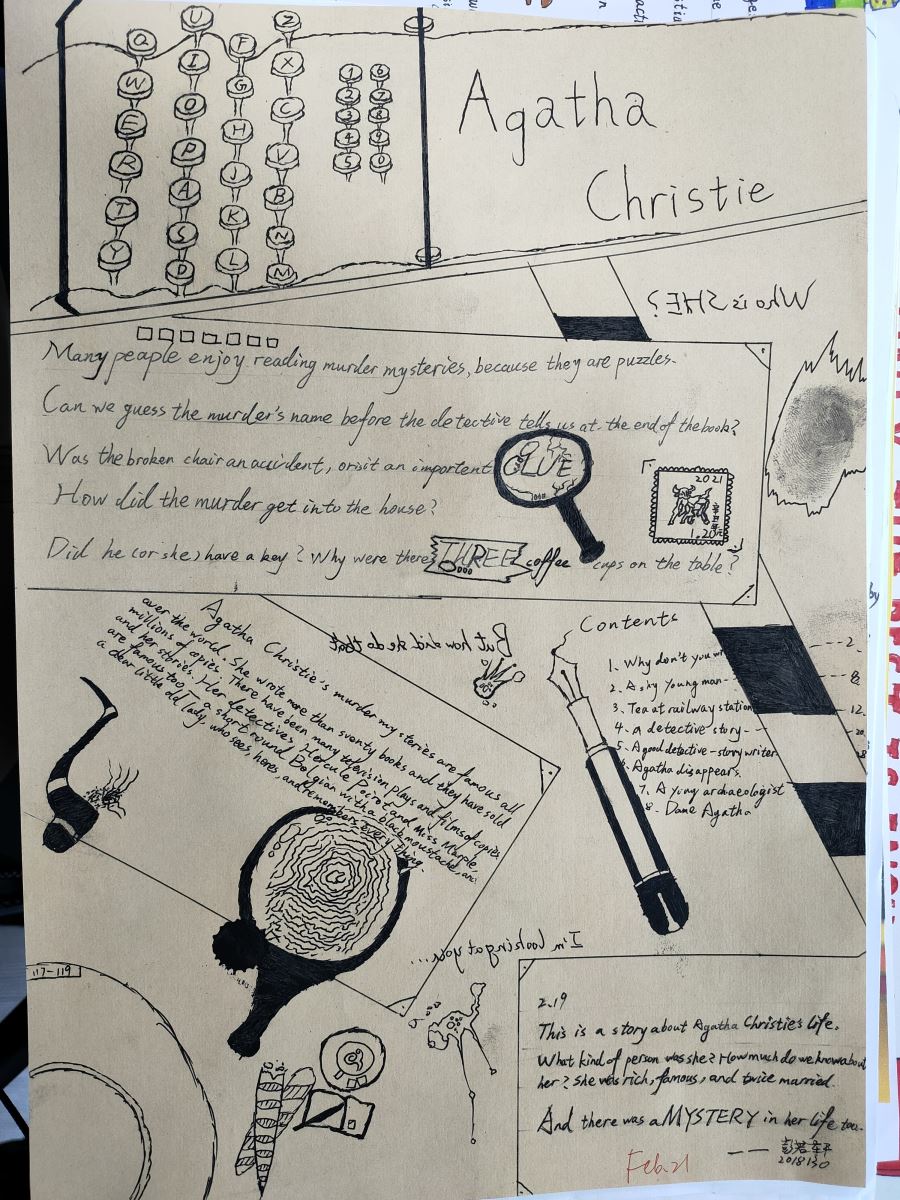 Q W E R T Y
U I O P A S D
F G H J K L
Z X C V B N M
1 2 3 4 5
6 7 8 9 0
Agatha
Christie
Who is SHE?
Many peaple enjoy reading murder mysteries, because they are puzzles.
Can we guess the murder's name before the detective tells us at the end of the book?
Was the broken chair an accident, or is it an importent CLUE
How did the murder get into the house?
Did he (or she) have a key? Why were there THREE coffee cups on the table?
2021
1.20
Agatha Christie's murder mysteries are famous all
over the world. She wrote more than sventy books and they have sold
millions of copies. There have been many television plays and films of copies
and her stories. Her detectives Hercule Poirot and Miss Marple
are famous too - a short round Belgian with a black moustache, and
a dear little old lady, who sees, hears, and remembers every thing.
But how did she do that
Contents
1. Why don't you wr
2. A shy young man
3. Tea at railway station
4. a detective story
5. A good detective-story writer
6. Agatha disappears.
7. A ying archaeologist
8. Dame Agatha
2
8
12
I'm looking at you...
117-119
2.19
This is a story about Agatha Christie's life.
What kind of person was she? How much do we know about
her? She was rich, famous, and twice married.
And there was a MYSTERY in her life too.
2018130
Feb.21